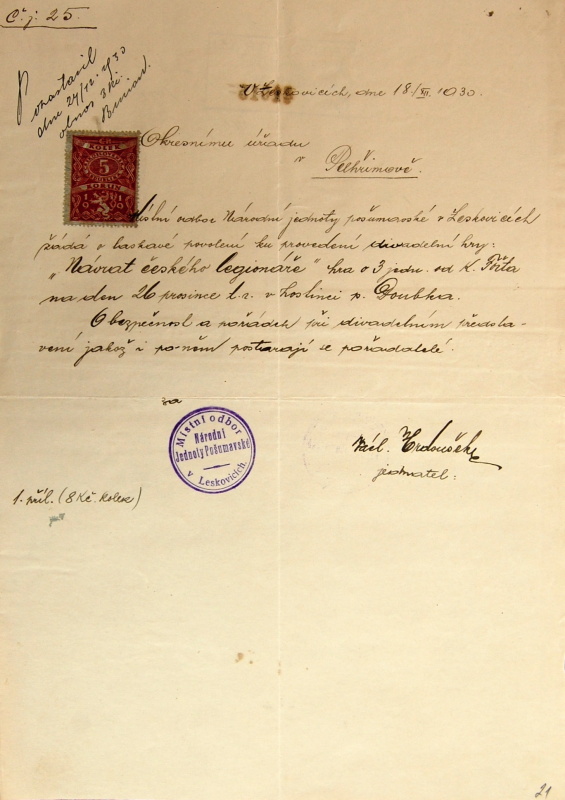 Č. j: 25.
dne 24/12. 1930
obnos 3 Kč.
V Leskovicích, dne 18./XII. 1930.
Okresnímu úřadu
v
Pelhřimově.
KOLEK
5
KORUN
Místní odbor Národní jednoty pošumavské v Leskovicích
žádá o laskavé povolení ku provedení divadelní hry:
"Návrat českého legionáře" hra o 3 jedn. od K. Fořta
na den 26 prosince t. r. v hostinci p. Doubka.
Obezpečnost a pořádek při divadelním předsta-
vení jakož i po-něm postarají se pořadatelé.
za
Místní odbor
Národní
Jednoty Pošumavské
v Leskovicích.
Václ. Hrdoušek
jednatel:
1. příl. (8 Kč. kolek)
21